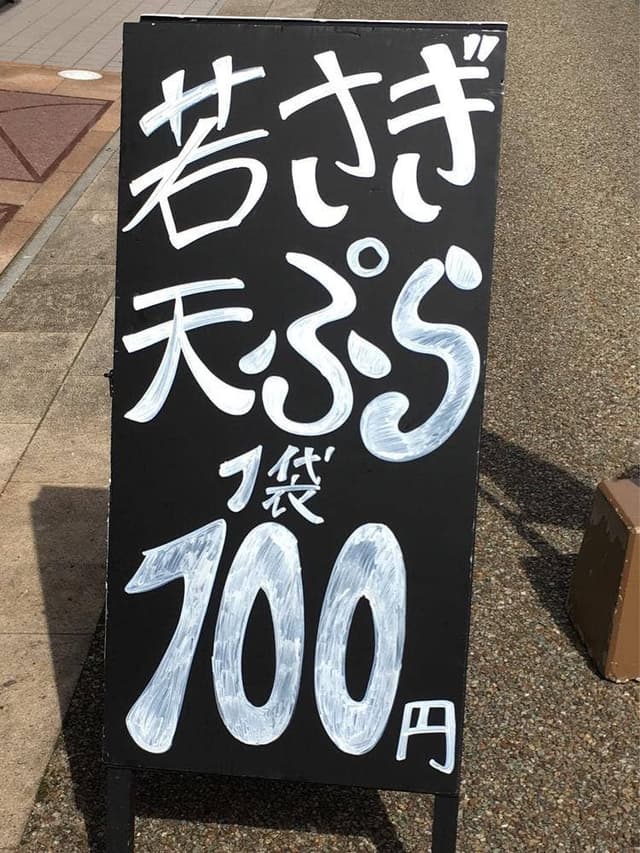 若さぎ
天ぷら
1袋
700円